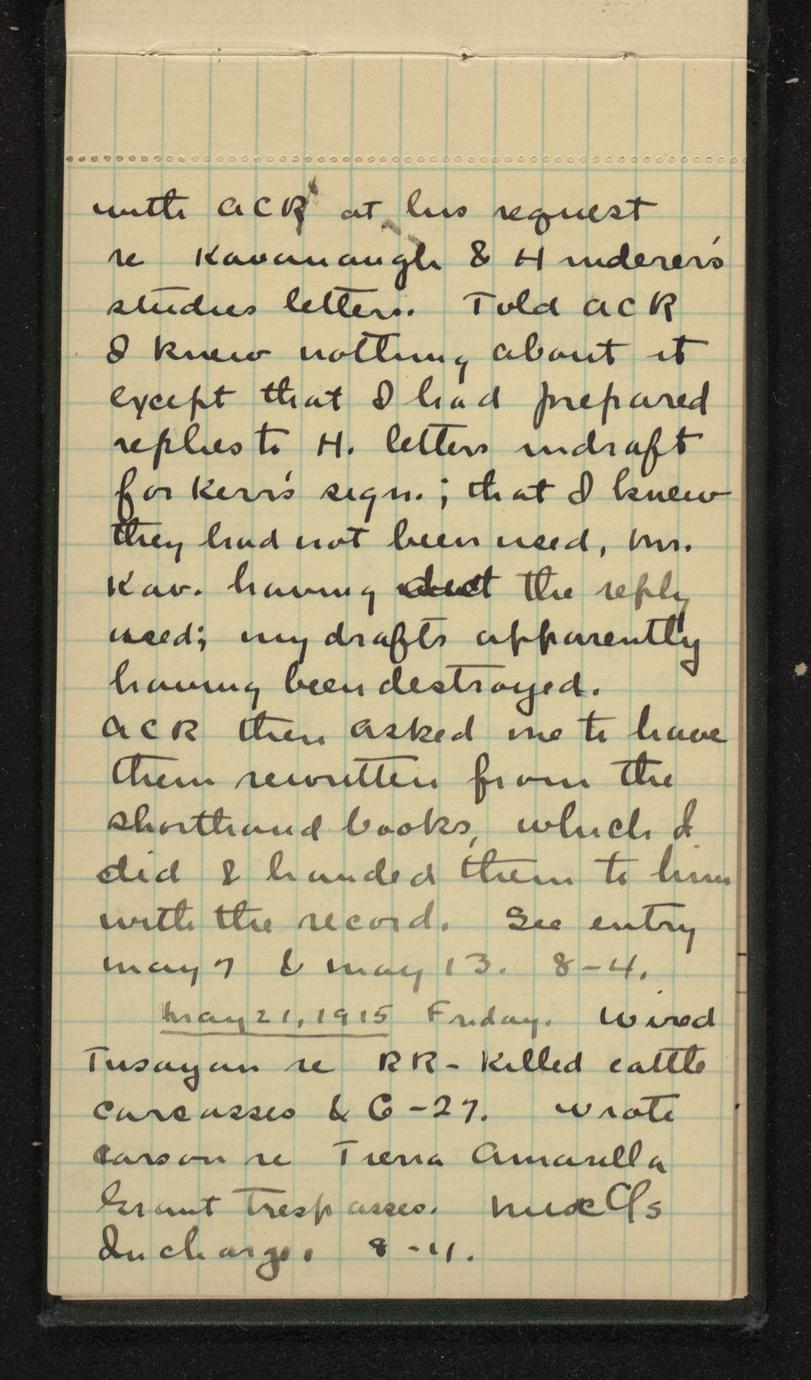 with ACR at his request
re Kavanaugh & Hinderer's
studies letters. Told ACR
I knew nothing about it
except that I had prepared
replies to H. letters in draft
for Kerr's sign.; that I knew
they had not been used, Mr.
Kav. having the reply
used; my drafts apparently
having been destroyed.
ACR then asked me to have
them rewritten from the
shorthand books, which I
did & handed them to him
with the record. See entry
May 7 & May 13. 8-4.
May 21, 1915 Friday. Wired
Tusayan re RR-Killed cattle
carcasses & G-27. Wrote
Carson re Tierra Amarilla
Grant Trespasses.
In charge. 8-4.